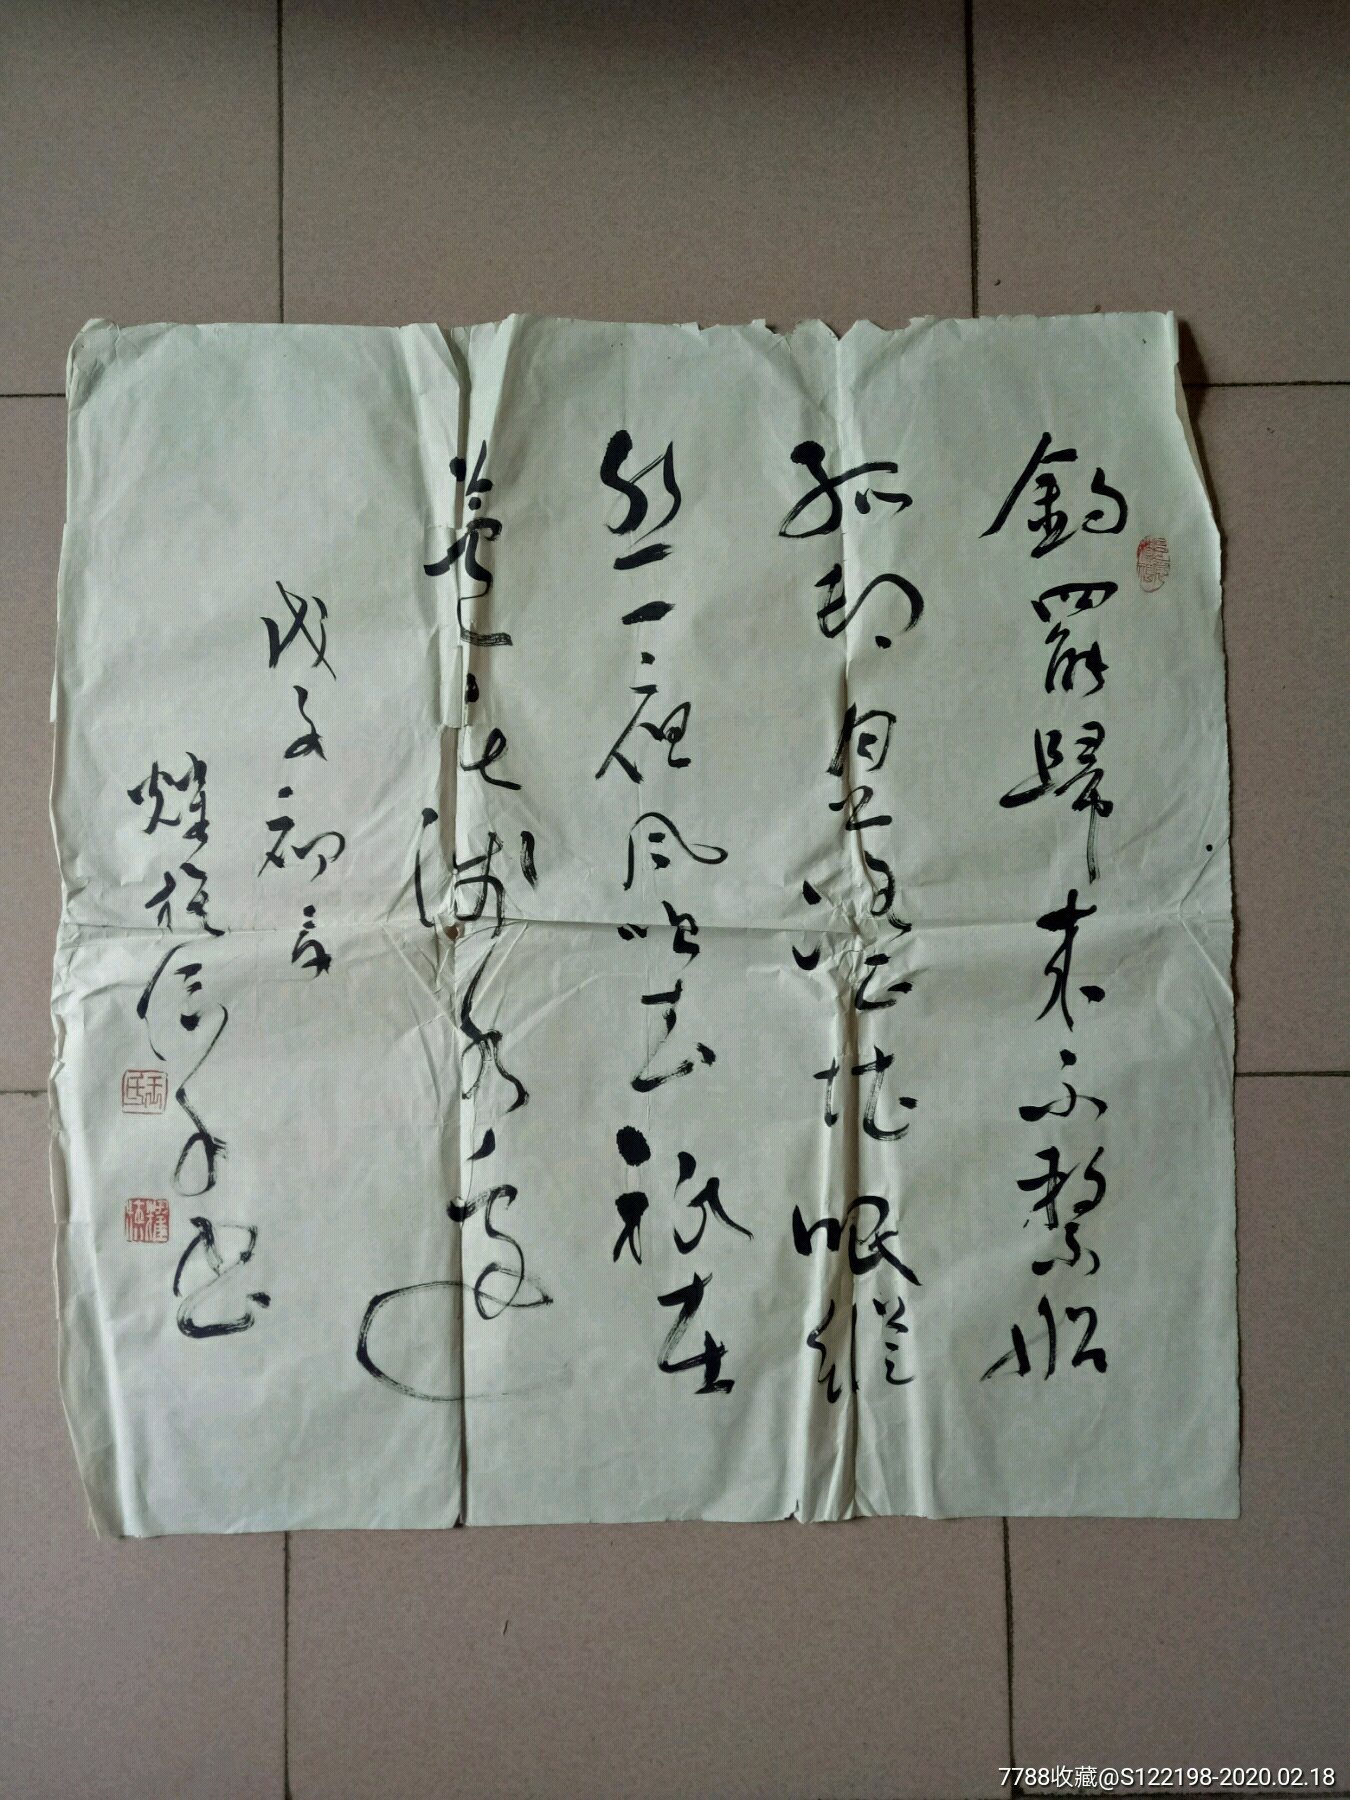 釣罷歸來不繫船
孤邨月落正堪眠縱
然一夜風吹去祇在
蘆花淺水邊
戊子初
書
7788收藏@S122198-2020.02.18